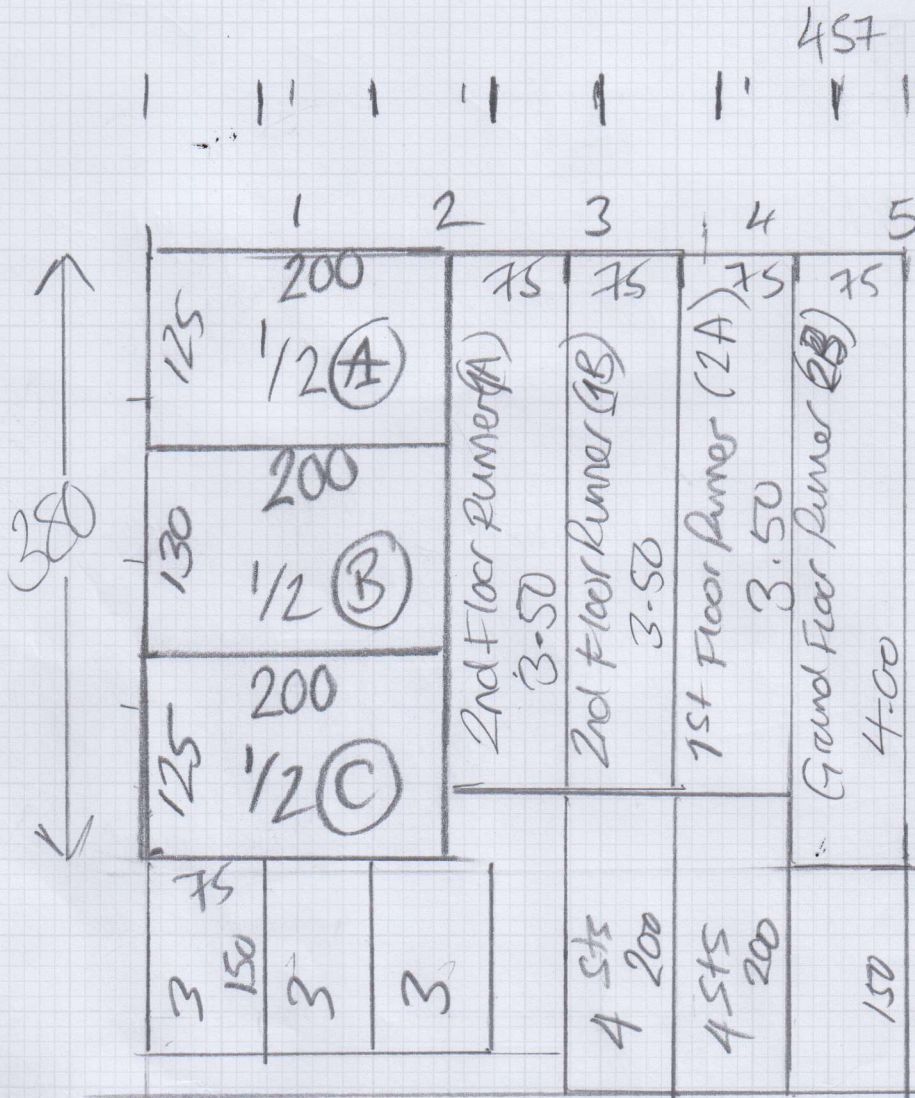 457
1 2 3 4 5
380
200
125
1/2 A
200
130
1/2 B
200
125
1/2 C
75
2nd Floor Runner (1A)
3-50
75
2nd Floor Runner (1B)
3-50
75
1st Floor Runner (2A)
3.50
75
Ground Floor Runner (2B)
4-00
75
3
150
3
3
4 Sts
200
4 Sts
200
150